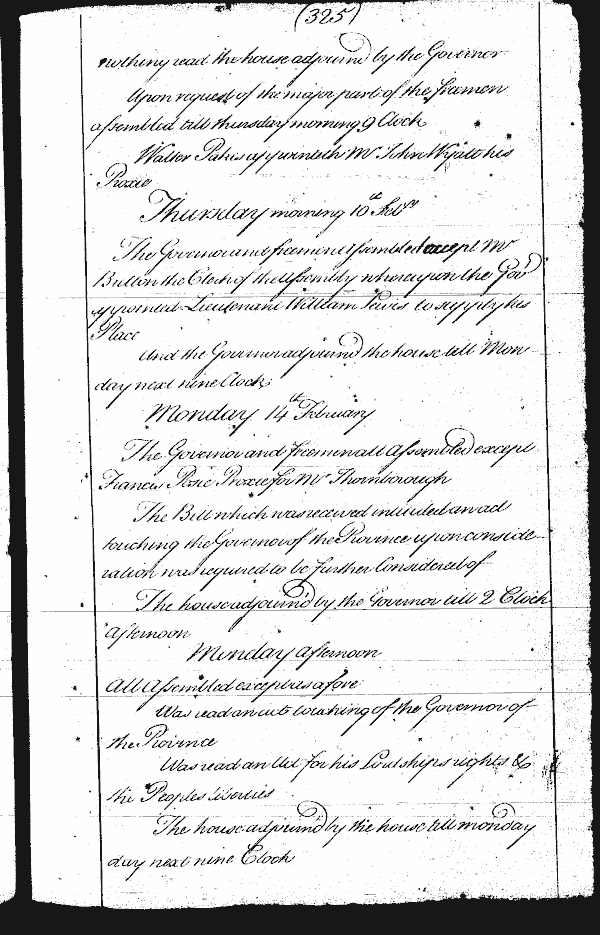 (325)
nothing read the house adjourned by the Governor
Upon request of the major part of the freemen
assembled till thursday morning 9 Clock
Walter Pakes appointeth Mr John Wyatt his
Proxie
Thursday morning 10th Febry
The Governor and freemen Assembled except Mr
Britton the Clerk of the Assembly whereupon the Govr
appointed Lieutenant William Lewis to supply his
Place
And the Governor adjournd the house till Mon-
day next nine Clock
Monday 14th February
The Governor and freemen all Assembled except
Francis Posie Proxie for Mr Thornborough
The Bill which was received intituled an act
touching the Governor of the Province upon conside-
ration was required to be further Considered of
The house adjournd by the Governor till 2 Clock
afternoon
Monday afternoon
All Assembled except as afore
Was read an act touching of the Governor of
the Province
Was read an Act for his Lordships rights &
the Peoples liberties
The house adjournd by the house till monday
day next nine Clock